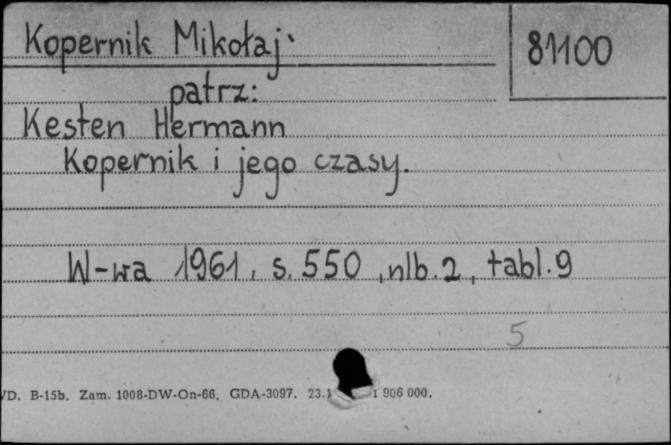 Kopernik Mikołaj
81100
patrz:
Kesten Hermann
Kopernik i jego czasy.
W-wa 1961, s. 550, nlb. 2, tabl. 9
5
D. B-15b. Zam. 1008-DW-On-66. GDA-3097. 23.1 906 000.